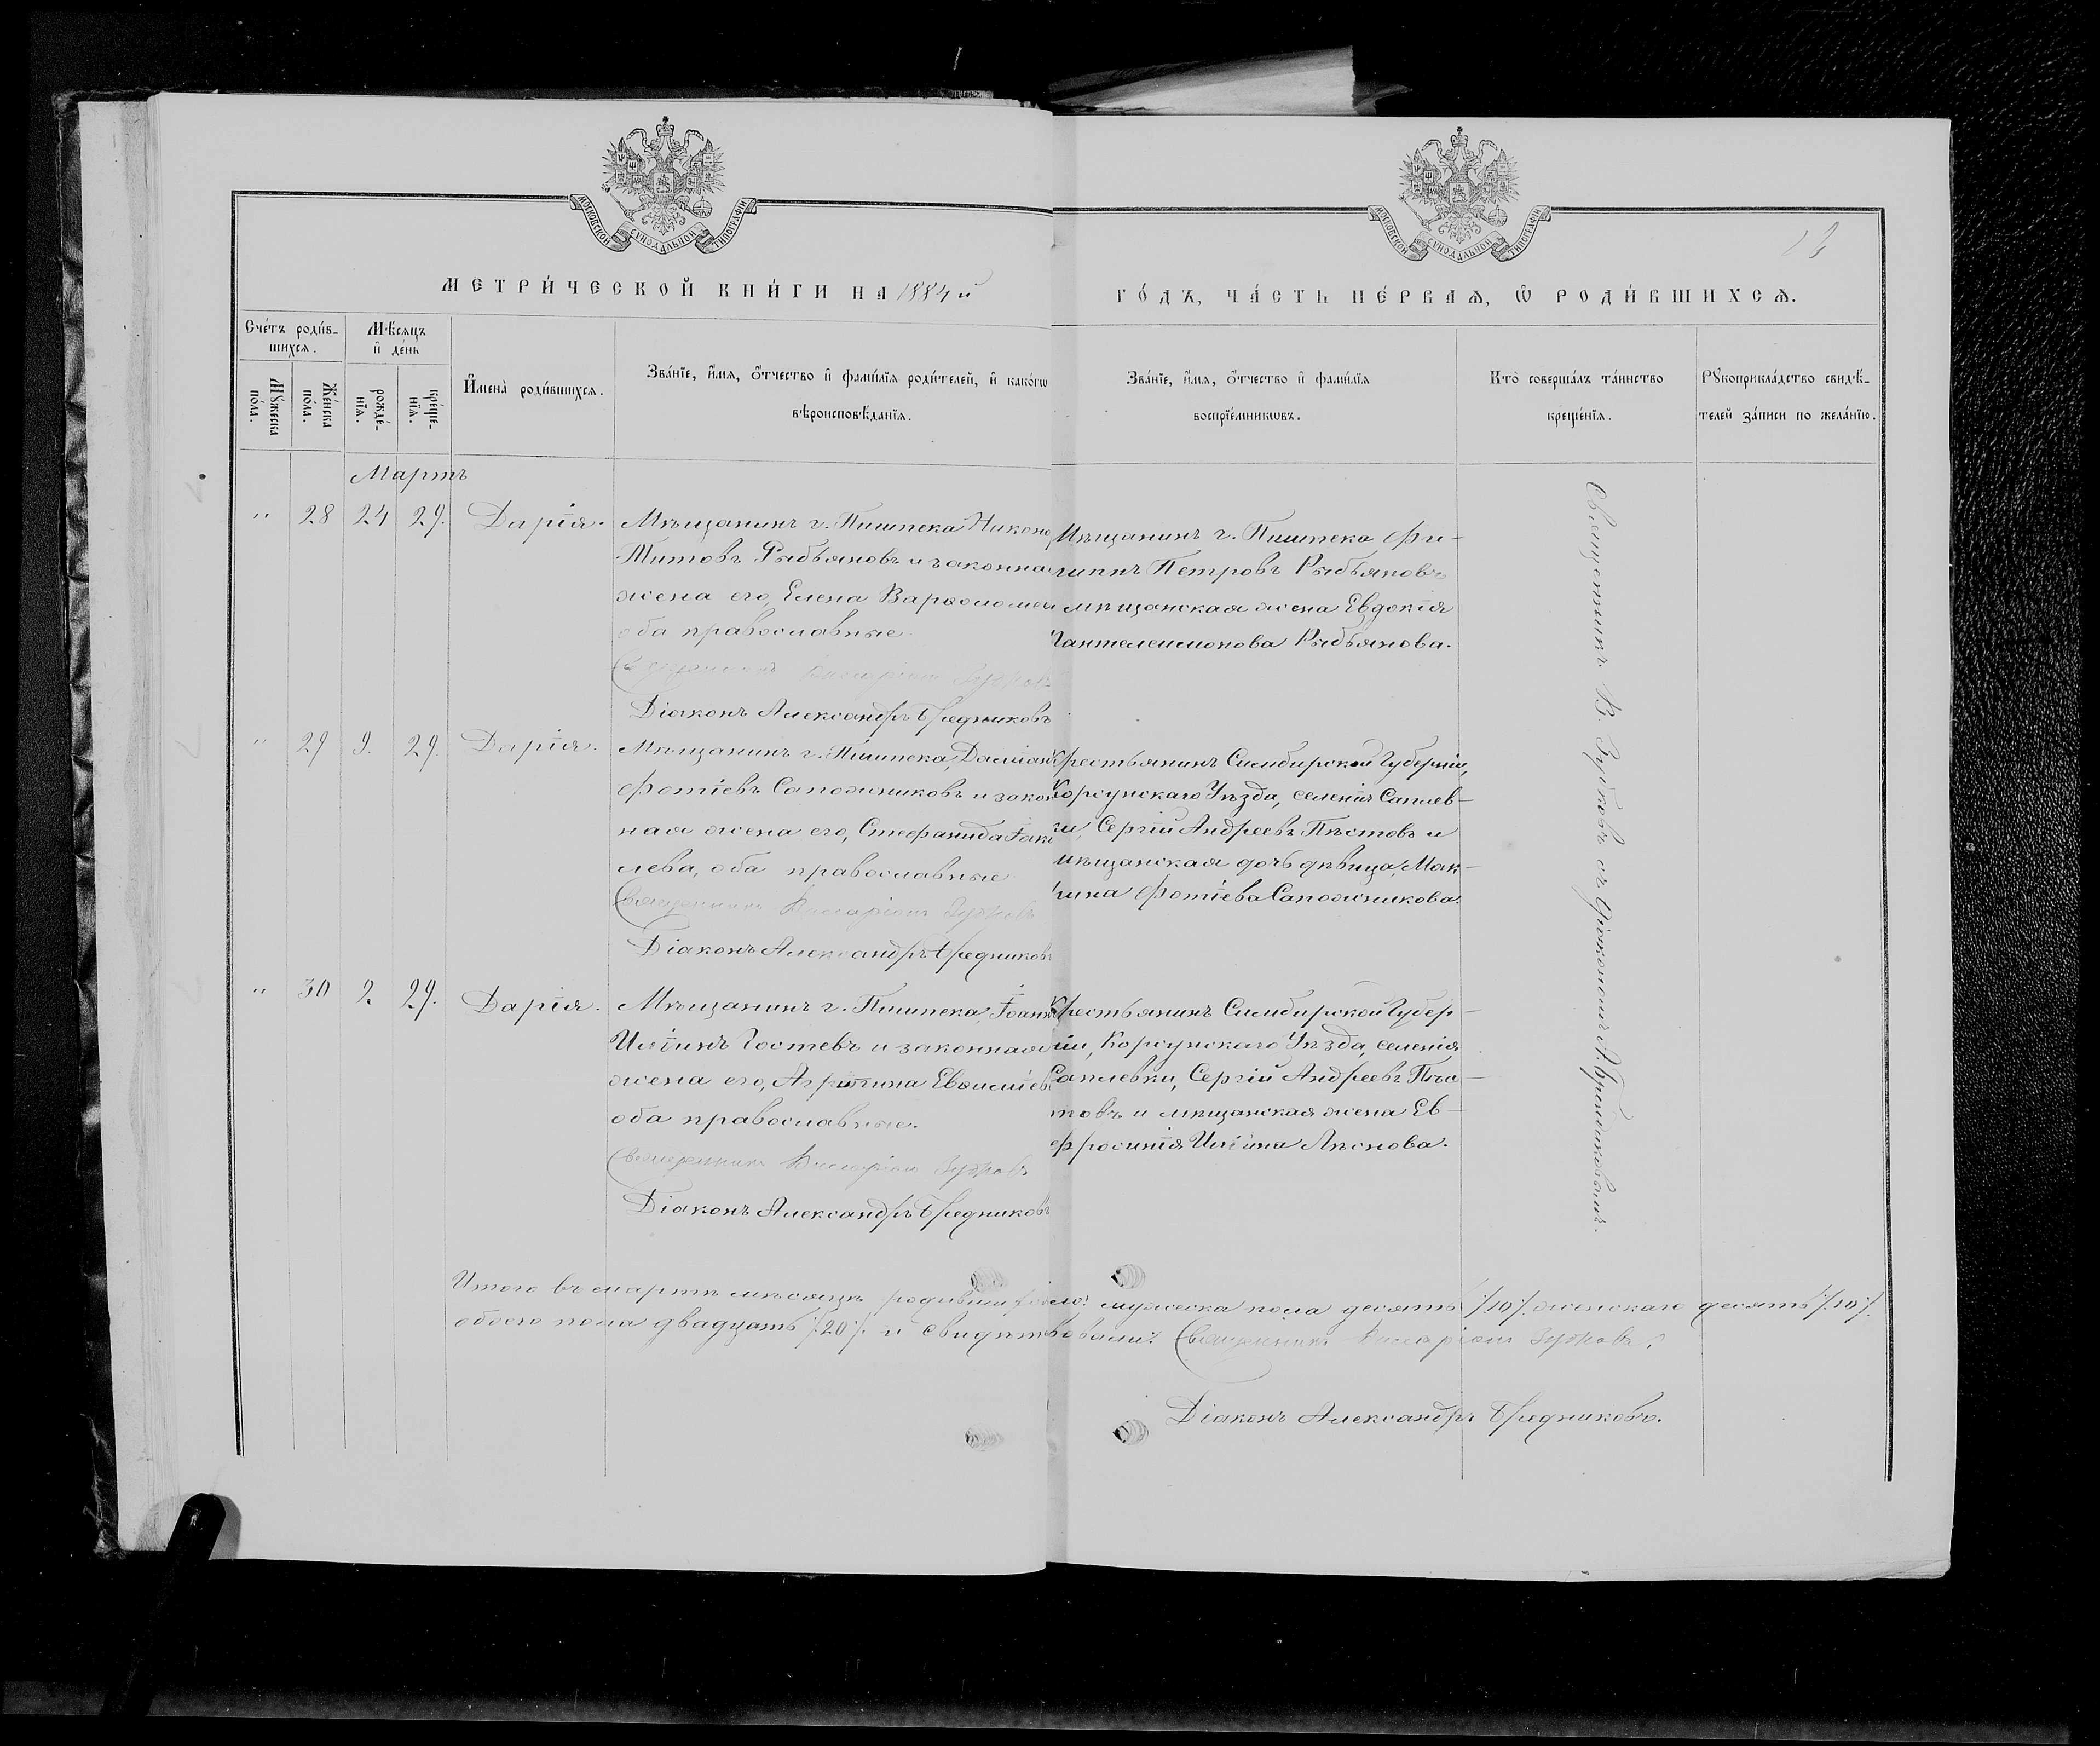 МОСКОВСКОЙ СѴНОДАЛЬНОЙ ТИПОГРАФІИ
МОСКОВСКОЙ СѴНОДАЛЬНОЙ ТИПОГРАФІИ
МЕТРИ́ЧЕСКОЙ КНИ́ГИ НА 1884 й
ГО́ДЪ, ЧА́СТЬ ПЕ́РВАѦ, Ѡ҆ РОДИ́ВШИХСѦ.
Сче́тъ роди́в-
шихсѧ.
Мѣ́сѧцъ
и҆ де́нь
Мꙋ́жеска
по́ла.
Же́нска
по́ла.
рожде́-
нїѧ.
креще́-
нїѧ.
И҆мена̀ роди́вшихсѧ.
Зва́нїе, и҆́мѧ, ѻ҆́тчество и҆ фами́лїѧ роди́телей, и҆ како́гѡ
вѣроисповѣ́данїѧ.
Зва́нїе, и҆́мѧ, ѻ҆́тчество и҆ фами́лїѧ
воспрїе́мникѡвъ.
Кто̀ соверша́лъ та́инство
креще́нїѧ.
Рꙋкоприкла́дство свидѣ́-
телей за́писи по жела́нїю.
Мартъ
" 28 24 29. Дарія.
Мѣщанинъ г. Пишпека Никонъ
Титовъ Рыбьяновъ и законная
жена его, Елена Варѳоломеи
оба православные.
Священникъ Виссаріонъ Зубковъ
Діаконъ Александръ Бредниковъ
Мѣщанинъ г. Пишпека Фи-
липпъ Петровъ Рыбьяновъ
мѣщанская жена Евдокія
Пантелеимонова Рыбьянова.
" 29 9. 29. Дарія.
Мѣщанинъ г. Пишпека, Даміанъ
Фотіевъ Сапожниковъ и закон
ная жена его, Стефанида Іаки
лева, оба православные
Священникъ Виссаріонъ Зубковъ
Діаконъ Александръ Бредниковъ
Крестьянинъ Симбирской Губерніи,
Корсунскаго Уѣзда, селенія Саплев-
ки, Сергій Андреевъ Пѣстовъ и
мѣщанская дочь дѣвица, Мак-
рина Фотіева Сапожникова.
" 30 2. 29. Дарія.
Мѣщанинъ г. Пишпека, Іоаннъ
Иліинъ Гостевъ и законная
жена его, Агриппина Евѳиміев
оба православные.
Священникъ Виссаріонъ Зубковъ
Діаконъ Александръ Бредниковъ
Крестьянинъ Симбирской Губер-
ніи, Корсунскаго Уѣзда, селенія
Саплевки, Сергій Андреевъ Пѣс-
товъ и мѣщанская жена Ев-
фросинія Иліина Лѣснова.
Священникъ В. Зубковъ съ діакономъ А. Бредниковымъ.
Итого въ мартѣ мѣсяцѣ родившихся мужеска пола десять /:10:/. женскаго десять /:10:/.
обоего пола двадцать /:20:/. и свидѣтельствовали: Священникъ Виссаріонъ Зубковъ.
Діаконъ Александръ Бредниковъ.